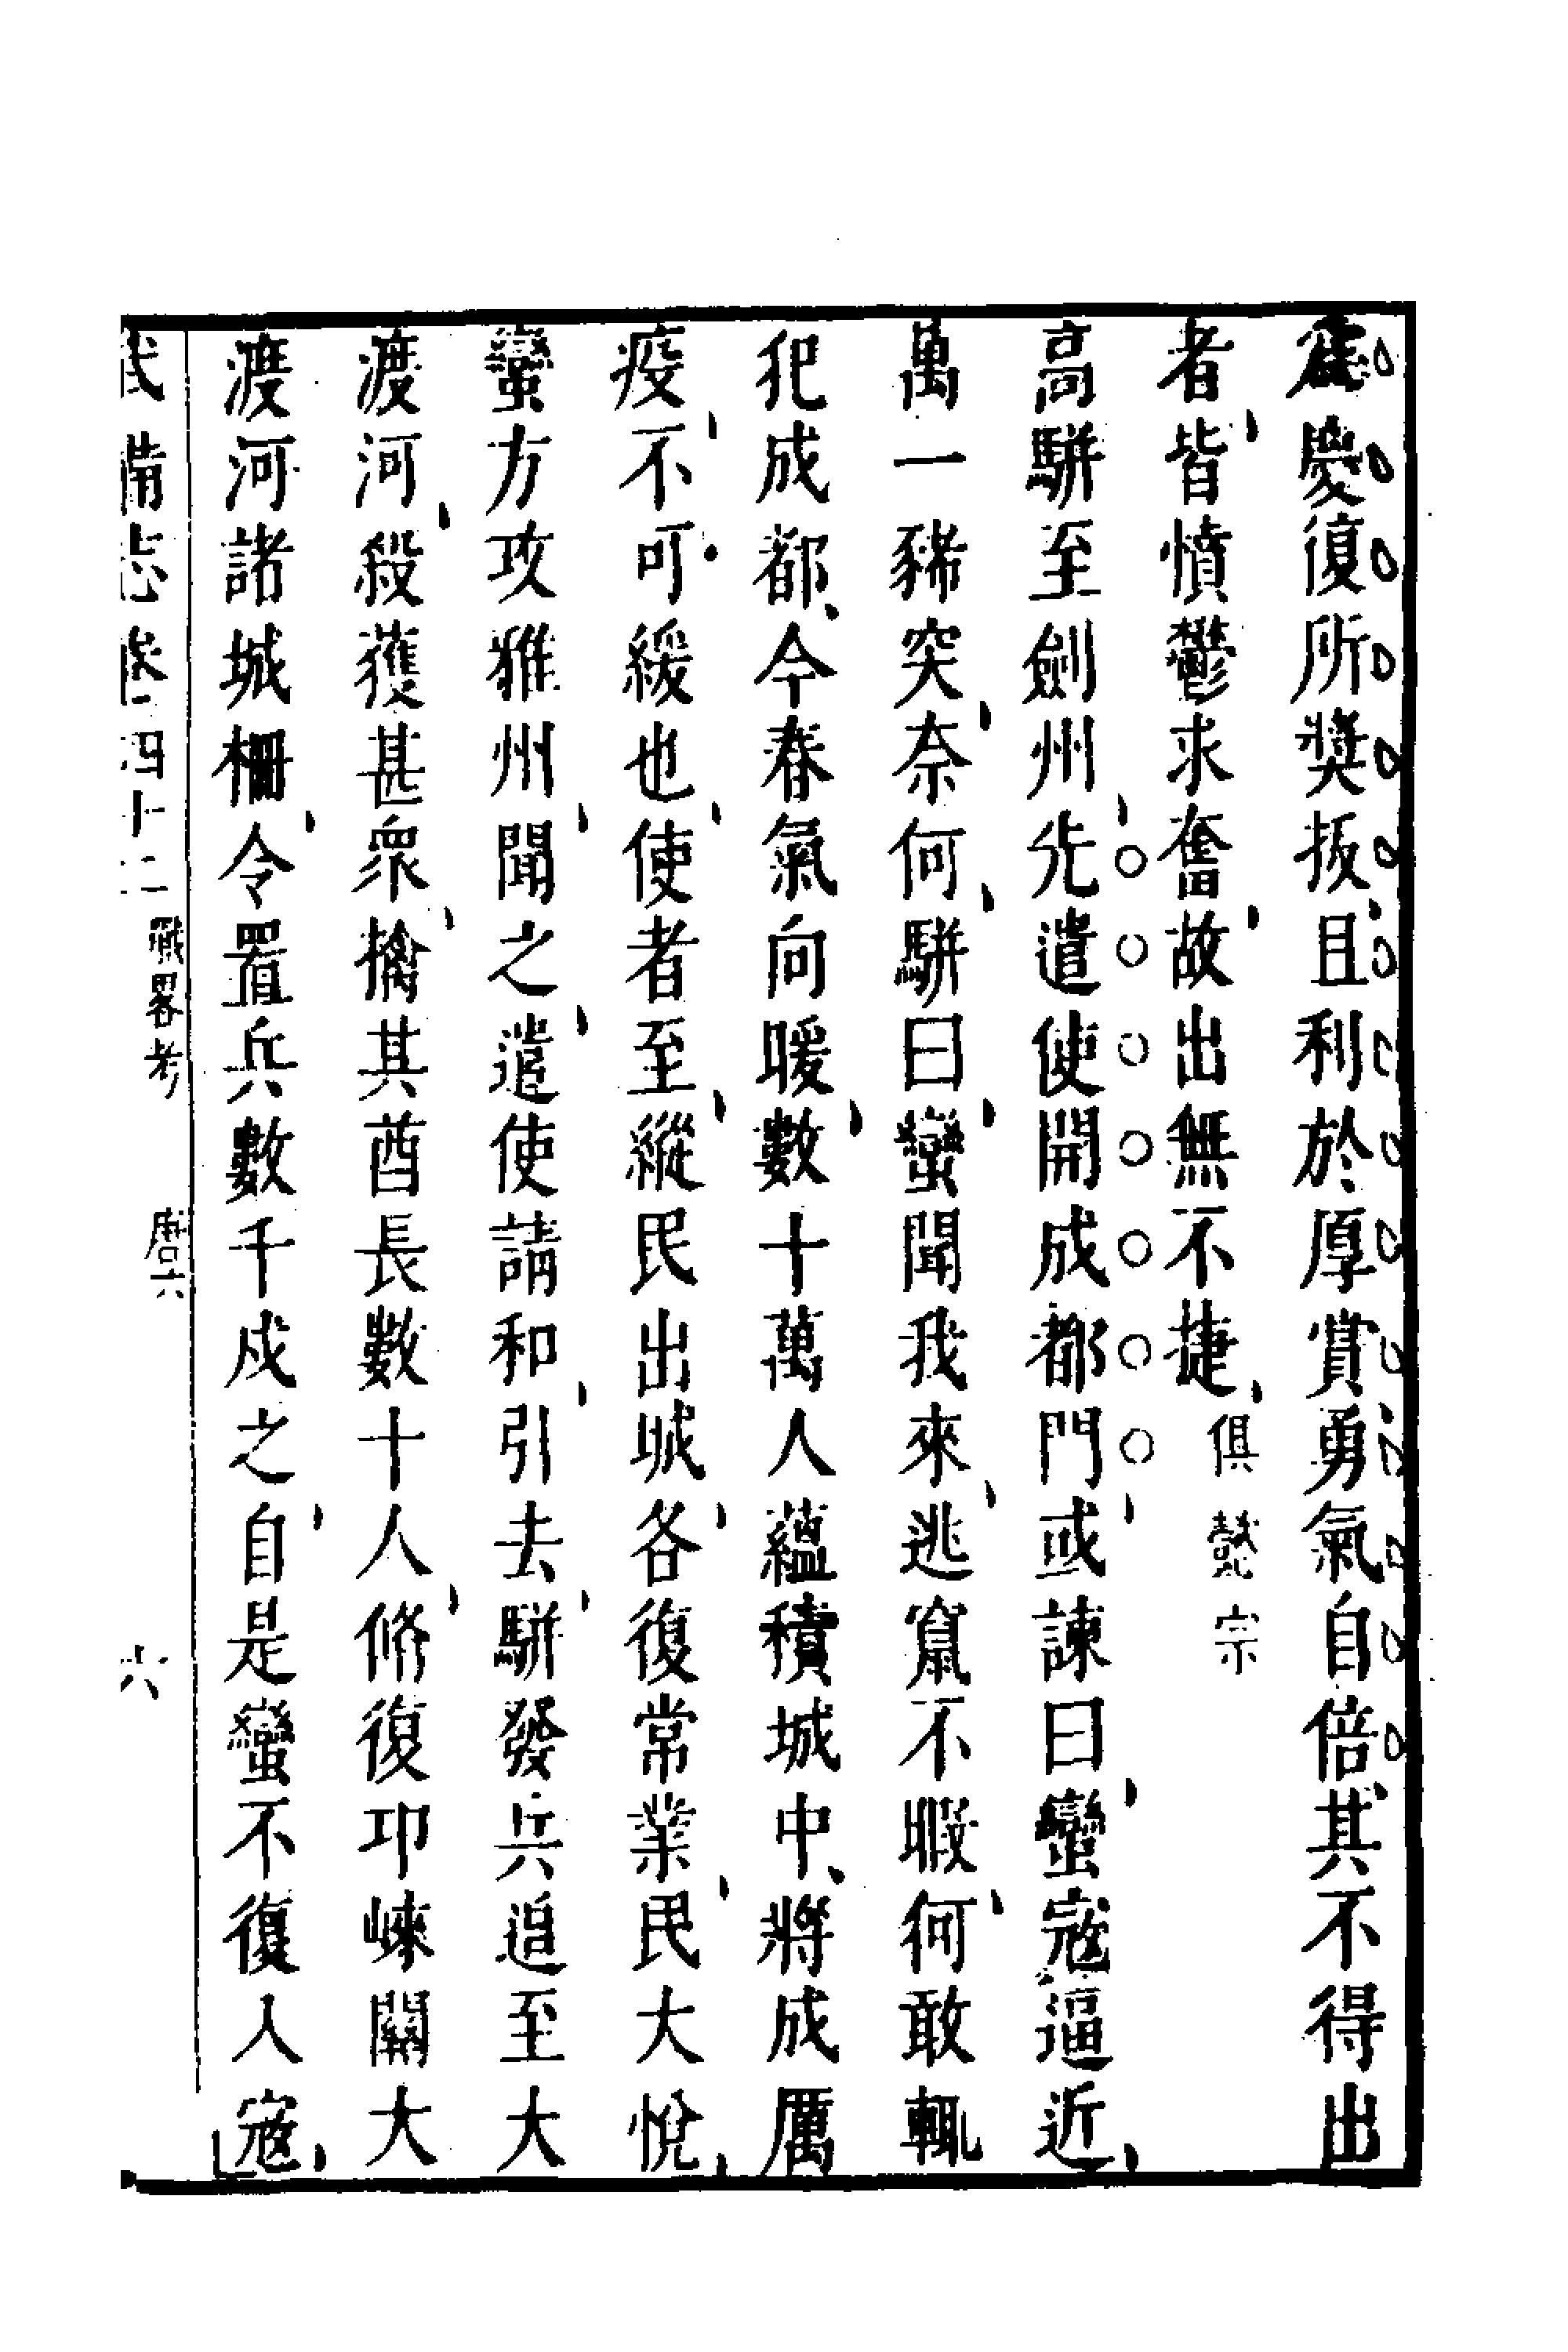 慶復所獎扳且利於厚賞勇氣自倍其不得出
者皆憤鬱求奮故出無不捷俱懿宗
高駢至劍州先遣使開成都門或諫曰蠻寇逼近
萬一豨突奈何駢曰蠻聞我來逃竄不暇何敢輒
犯成都今春氣向暖數十萬人蘊積城中將成厲
疫不可緩也使者至縱民出城各復常業民大悅
蠻方攻雅州聞之遣使請和引去駢發兵追至大
渡河殺獲甚衆擒其酋長數十人脩復邛崍關大
渡河諸城柵令置兵數千戍之自是蠻不復入寇
武備志卷四十二 戰畧考 唐六 六